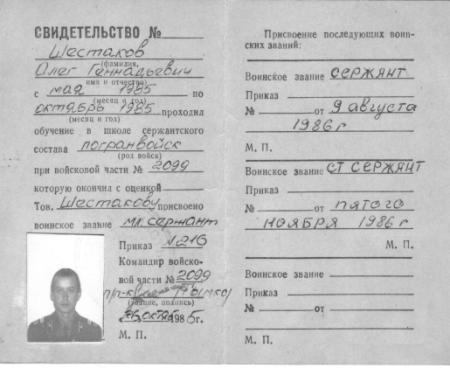 СВИДЕТЕЛЬСТВО №
Шестаков
(фамилия,
Олег Геннадьевич
имя и отчество)
с мая 1985 по
(месяц и год)
октябрь 1985 проходил
(месяц и год)
обучение в школе сержантского
состава погранвойск
(род войск)
при войсковой части № 2099
которую окончил с оценкой
Тов. Шестакову присвоено
воинское звание мл. сержант
Приказ № 216
Командир войско-
вой части № 2099
(звание, подпись)
198 5 г.
М. П.
Присвоение последующих воин-
ских званий:
Воинское звание СЕРЖАНТ
Приказ
№ от 9 августа
1986 г
М. П.
Воинское звание СТ СЕРЖАНТ
Приказ
№ от пятого
НОЯБРЯ 1986 г
М. П.
Воинское звание
Приказ
№ от
М. П.